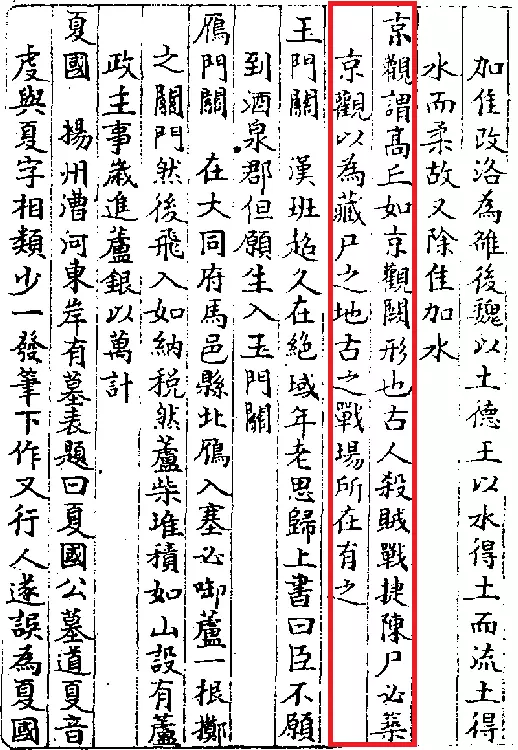 加隹改洛為雒後魏以土德王以水得土而流土得
水而柔故又除隹加水
京觀謂高丘如京觀闕形也古人殺賊戰捷陳尸必築
京觀以為藏尸之地古之戰場所在有之
玉門關　漢班超久在絕域年老思歸上書曰臣不願
到酒泉郡但願生入玉門關
鴈門關　在大同府馬邑縣北鴈入塞必啣蘆一根擲
之關門然後飛入如納稅然蘆柴堆積如山設有蘆
政主事歲進蘆銀以萬計
夏國　揚州漕河東岸有墓表題曰夏國公墓道夏音
虔與夏字相類少一發筆下作又行人遂誤為夏國